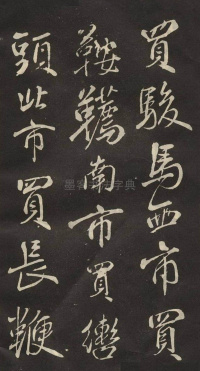 買駿馬西市買
鞍韉南市買轡
頭北市買長鞭
墨客书法字典